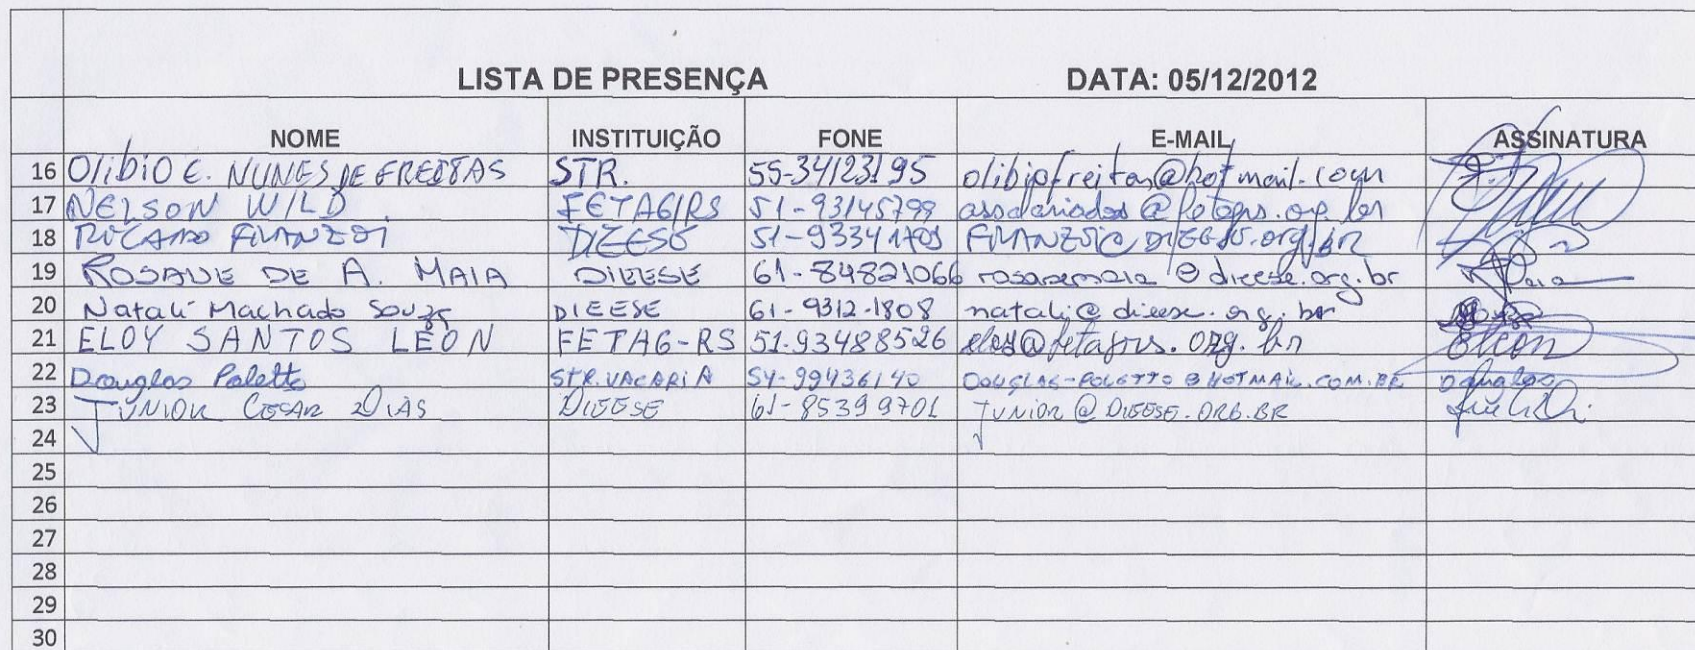 LISTA DE PRESENÇA DATA: 05/12/2012
NOME INSTITUIÇÃO FONE E-MAIL ASSINATURA
16 Olibio E. NUNES DE FREITAS STR. 55-34123195 olibiofreitas@hotmail.com
17 NELSON WILD FETAG/RS 51-93145799
18 FRANZOI DIEESE 51-93341709
19 ROSANE DE A. MAIA DIEESE 61-84821066 rosanemaia@dieese.org.br Maia
20 Natalí Machado Souza DIEESE 61-9312-1808 natali@dieese.org.br
21 ELOY SANTOS LEÓN FETAG-RS 51-93488526 eloy@fetagrs.org.br
22 Douglas Poletto STR.VACARIA 54-99436140 DOUGLAS-POLETTO@HOTMAIL.COM.BR Douglas
23 JUNIOR CESAR DIAS DIEESE 61-85399701 JUNIOR@DIEESE.ORG.BR
24
25
26
27
28
29
30